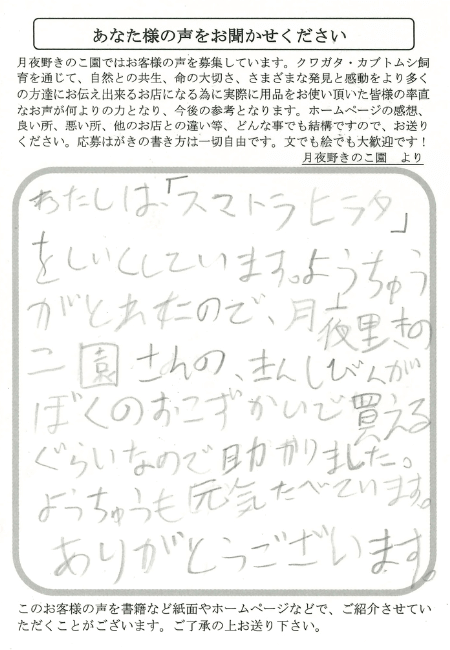 あなた様の声をお聞かせください
月夜野きのこ園ではお客様の声を募集しています。クワガタ・カブトムシ飼
育を通じて、自然との共生、命の大切さ、さまざまな発見と感動をより多く
の方達にお伝え出来るお店になる為に実際に用品をお使い頂いた皆様の率直
なお声が何よりの力となり、今後の参考となります。ホームページの感想、
良い所、悪い所、他のお店との違い等、どんな事でも結構ですので、お送り
ください。応募はがきの書き方は一切自由です。文でも絵でも大歓迎です！
月夜野きのこ園　より
わたしは、「スマトラヒラタ」
をしいくしています。ようちゅう
がとれたので、月夜野きの
こ園さんの、きんしびんが
ぼくのおこずかいで買える
ぐらいなので助かりました。
ようちゅうも元気たべています。
ありがとうございます。
このお客様の声を書籍など紙面やホームページなどで、ご紹介させてい
ただくことがございます。ご了承の上お送り下さい。